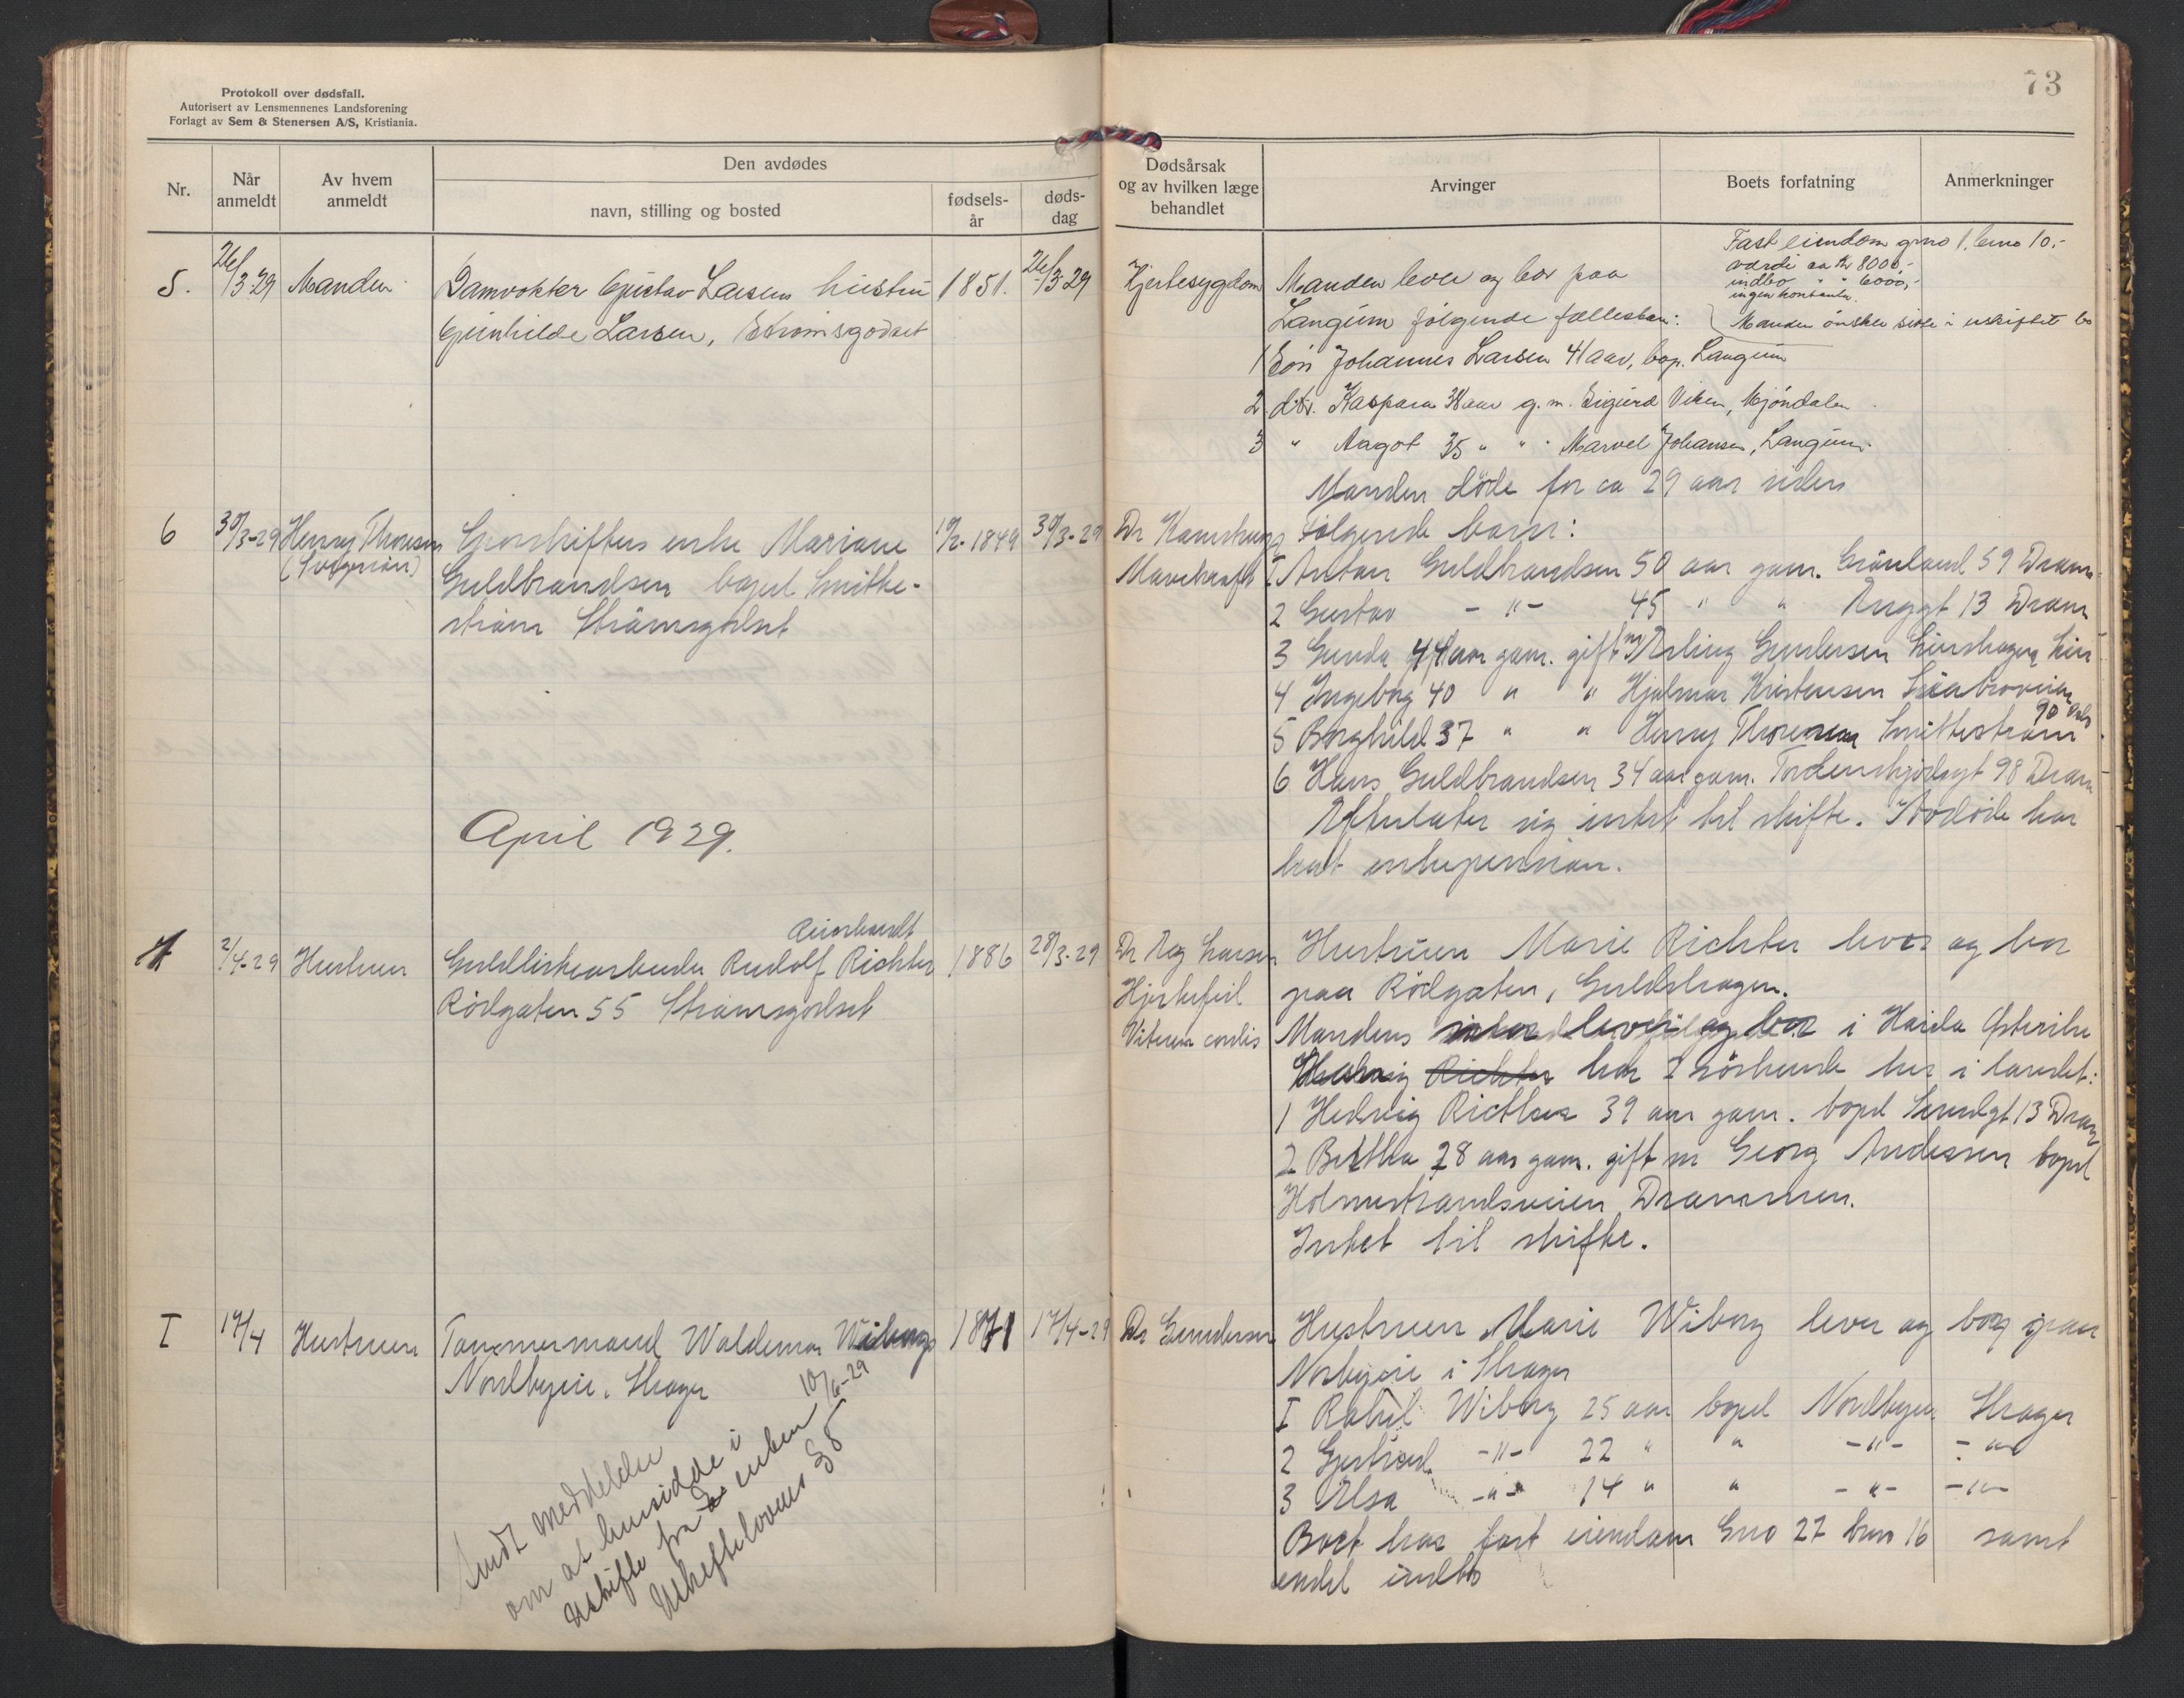 Protokoll over dødsfall.
Autorisert av Lensmennenes Landsforening
Forlagt av Sem & Stenersen A/S, Kristiania.
73
Nr.
Når anmeldt
Av hvem anmeldt
Den avdødes
navn, stilling og bosted
fødsels-år
døds-dag
Dødsårsak og av hvilken læge behandlet
Arvinger
Boets forfatning
Anmerkninger
5. 26/3 29 Manden Damvokter Gustav Larsens hustru 1851. 26/3 29
Gunhilde Larsen, Strømsgodset
Hjertesygdom
Manden lever og bor paa
Langum følgende fællesbarn:
1 Søn Johannes Larsen 41 aar, bop. Langum
2 dtr. Kaspara 38 aar g.m. Sigurd Viken, Mjøndalen
3 " Aagot 35 " " " Marvel Johansen, Langum.
Fast eiendom grno 1, bno 10.-
værdi ca kr 8000,-
indbo " " 6000,-
ingen kontanter.
Manden ønsker sitte i uskiftet bo
6 30/3-29 Henry Thoresen Sporskifters enke Mariane 10/2-1849 30/3-29
(Svigersøn) Guldbrandsen bopel Smitte-
strøm Strømsgodset
Dr Kamstrup
Mavekræft
Manden døde for ca 29 aar siden
Følgende barn:
1 Anton Guldbrandsen 50 aar gam. Grønland 59 Dram
2 Gustav -"- 45 " " 13 Dram
3 Gunda 44 aar gam. gift m/ Erling Gundersen Lierskogen Lier
4 Ingeborg 40 " " Hjalmar Kristensen
90 Oslo
5 Borghild 37 " " Henry Thoresen Smittestrøm
6 Hans Guldbrandsen 34 aar gam. Tordenskjoldsgt 98 Dram
Efterlater sig intet til skifte. Avdøde har
hat enkepension.
April 1929.
2/4-29 Hustruen Guldlistearbeider Rudolf Richter 1886 28/3-29
Rødgaten 55 Strømsgodset
Dr Aag Larsen
Hjertefeil
Vitium cordis
Hustruen Marie Richter lever og bor
paa Rødgaten, Guldskogen.
Mandens lever og bor i Haida Østerike
Richter har 2 søskende her i landet:
1 Hedvig Richter 39 aar gam. bopel 13 Dram
2 Bertha 28 aar gam. gift m Georg Andersen bopel
Holmestrandsveien Drammen.
Intet til skifte.
I 17/4 Hustruen Tømmermand Waldemar Wiborg 1871 17/4-29
Nordbyeie, Skoger
Dr Gundersen
Hustruen Marie Wiborg lever og bor paa
Norbyeie i Skoger
I Wiborg 25 aar bopel Nordbyeie Skoger
2 Gjertrud -"- 22 " " -"- -"-
3 Elsa -"- 14 " " -"- -"-
Boet har fast eiendom Gno 27 bno 16 samt
endel indbo
Sendt meddelelse
om at hensidde i
uskifte fra enken 10/6-29
Uskiftelovens § 8